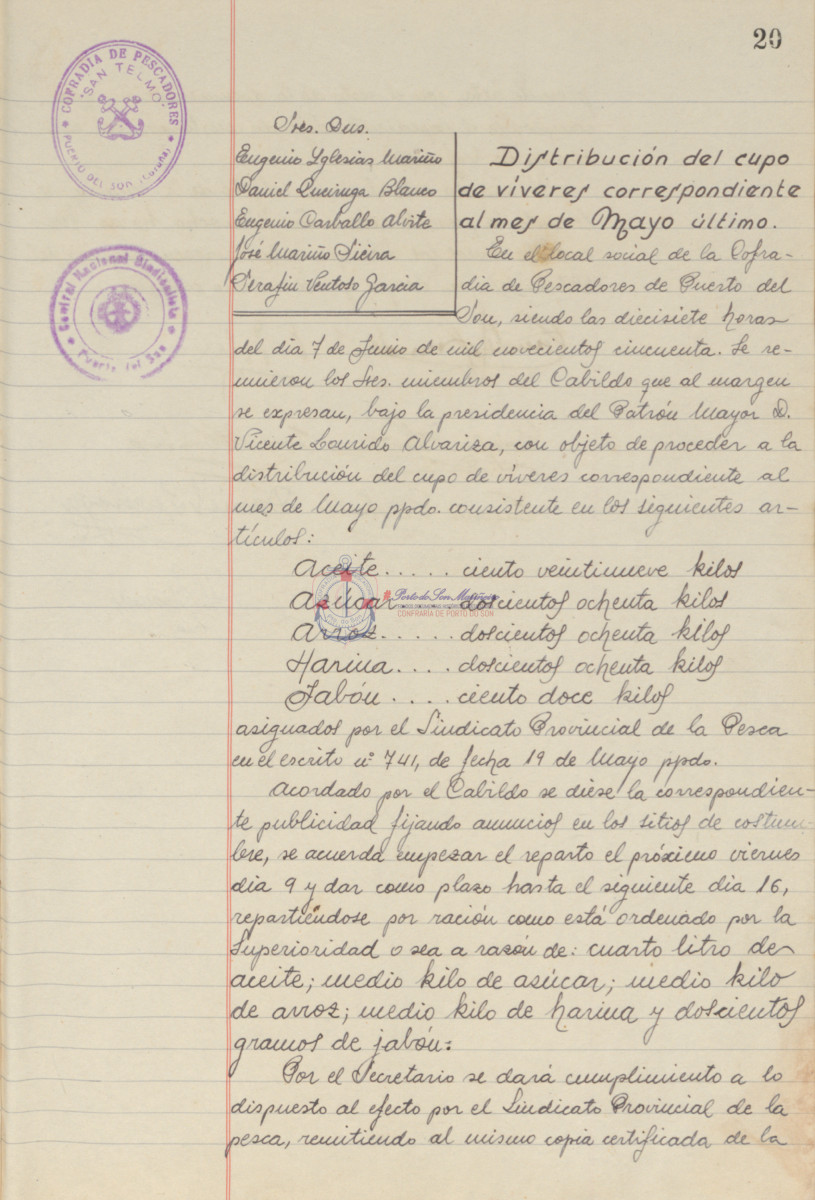 20
COFRADIA DE PESCADORES
"SAN TELMO"
PUERTO DEL SON (Coruña)
Central Nacional Sindicalista
Puerto del Son
Sres. Dns.
Eugenio Yglesias Mariño
Daniel Queiruga Blanco
Eugenio Carballo Alvite
José Mariño Sieira
Serafin Ventoso Garcia
Distribución del cupo
de víveres correspondiente
al mes de Mayo último.
En el local social de la Cofra-
dia de Pescadores de Puerto del
Son, siendo las diecisiete horas
del dia 7 de Junio de mil novecientos cincuenta. Se re-
unieron los Sres. miembros del Cabildo que al margen
se expresan, bajo la presidencia del Patrón Mayor D.
Vicente Lourido Alvariza, con objeto de proceder a la
distribución del cupo de víveres correspondiente al
mes de Mayo ppdo. consistente en los siguientes ar-
tículos:
Aceite..... ciento veintinueve kilos
Azúcar doscientos ochenta kilos
Arroz..... doscientos ochenta kilos
Harina.... doscientos ochenta kilos
Jabón.... ciento doce kilos
Porto do Son Mariñeiro
CONFRARÍA DE PORTO DO SON
asignados por el Sindicato Provincial de la Pesca
en el escrito nº 741, de fecha 19 de Mayo ppdo.
Acordado por el Cabildo se diese la correspondien-
te publicidad fijando anuncios en los sitios de costum-
bre, se acuerda empezar el reparto el próximo viernes
dia 9 y dar como plazo hasta el siguiente dia 16,
repartiéndose por ración como está ordenado por la
Superioridad o sea a razón de: cuarto litro de
aceite; medio kilo de azúcar; medio kilo
de arroz; medio kilo de harina y doscientos
gramos de jabón:
Por el Secretario se dará cumplimiento a lo
dispuesto al efecto por el Sindicato Provincial de la
pesca, remitiendo al mismo copia certificada de la